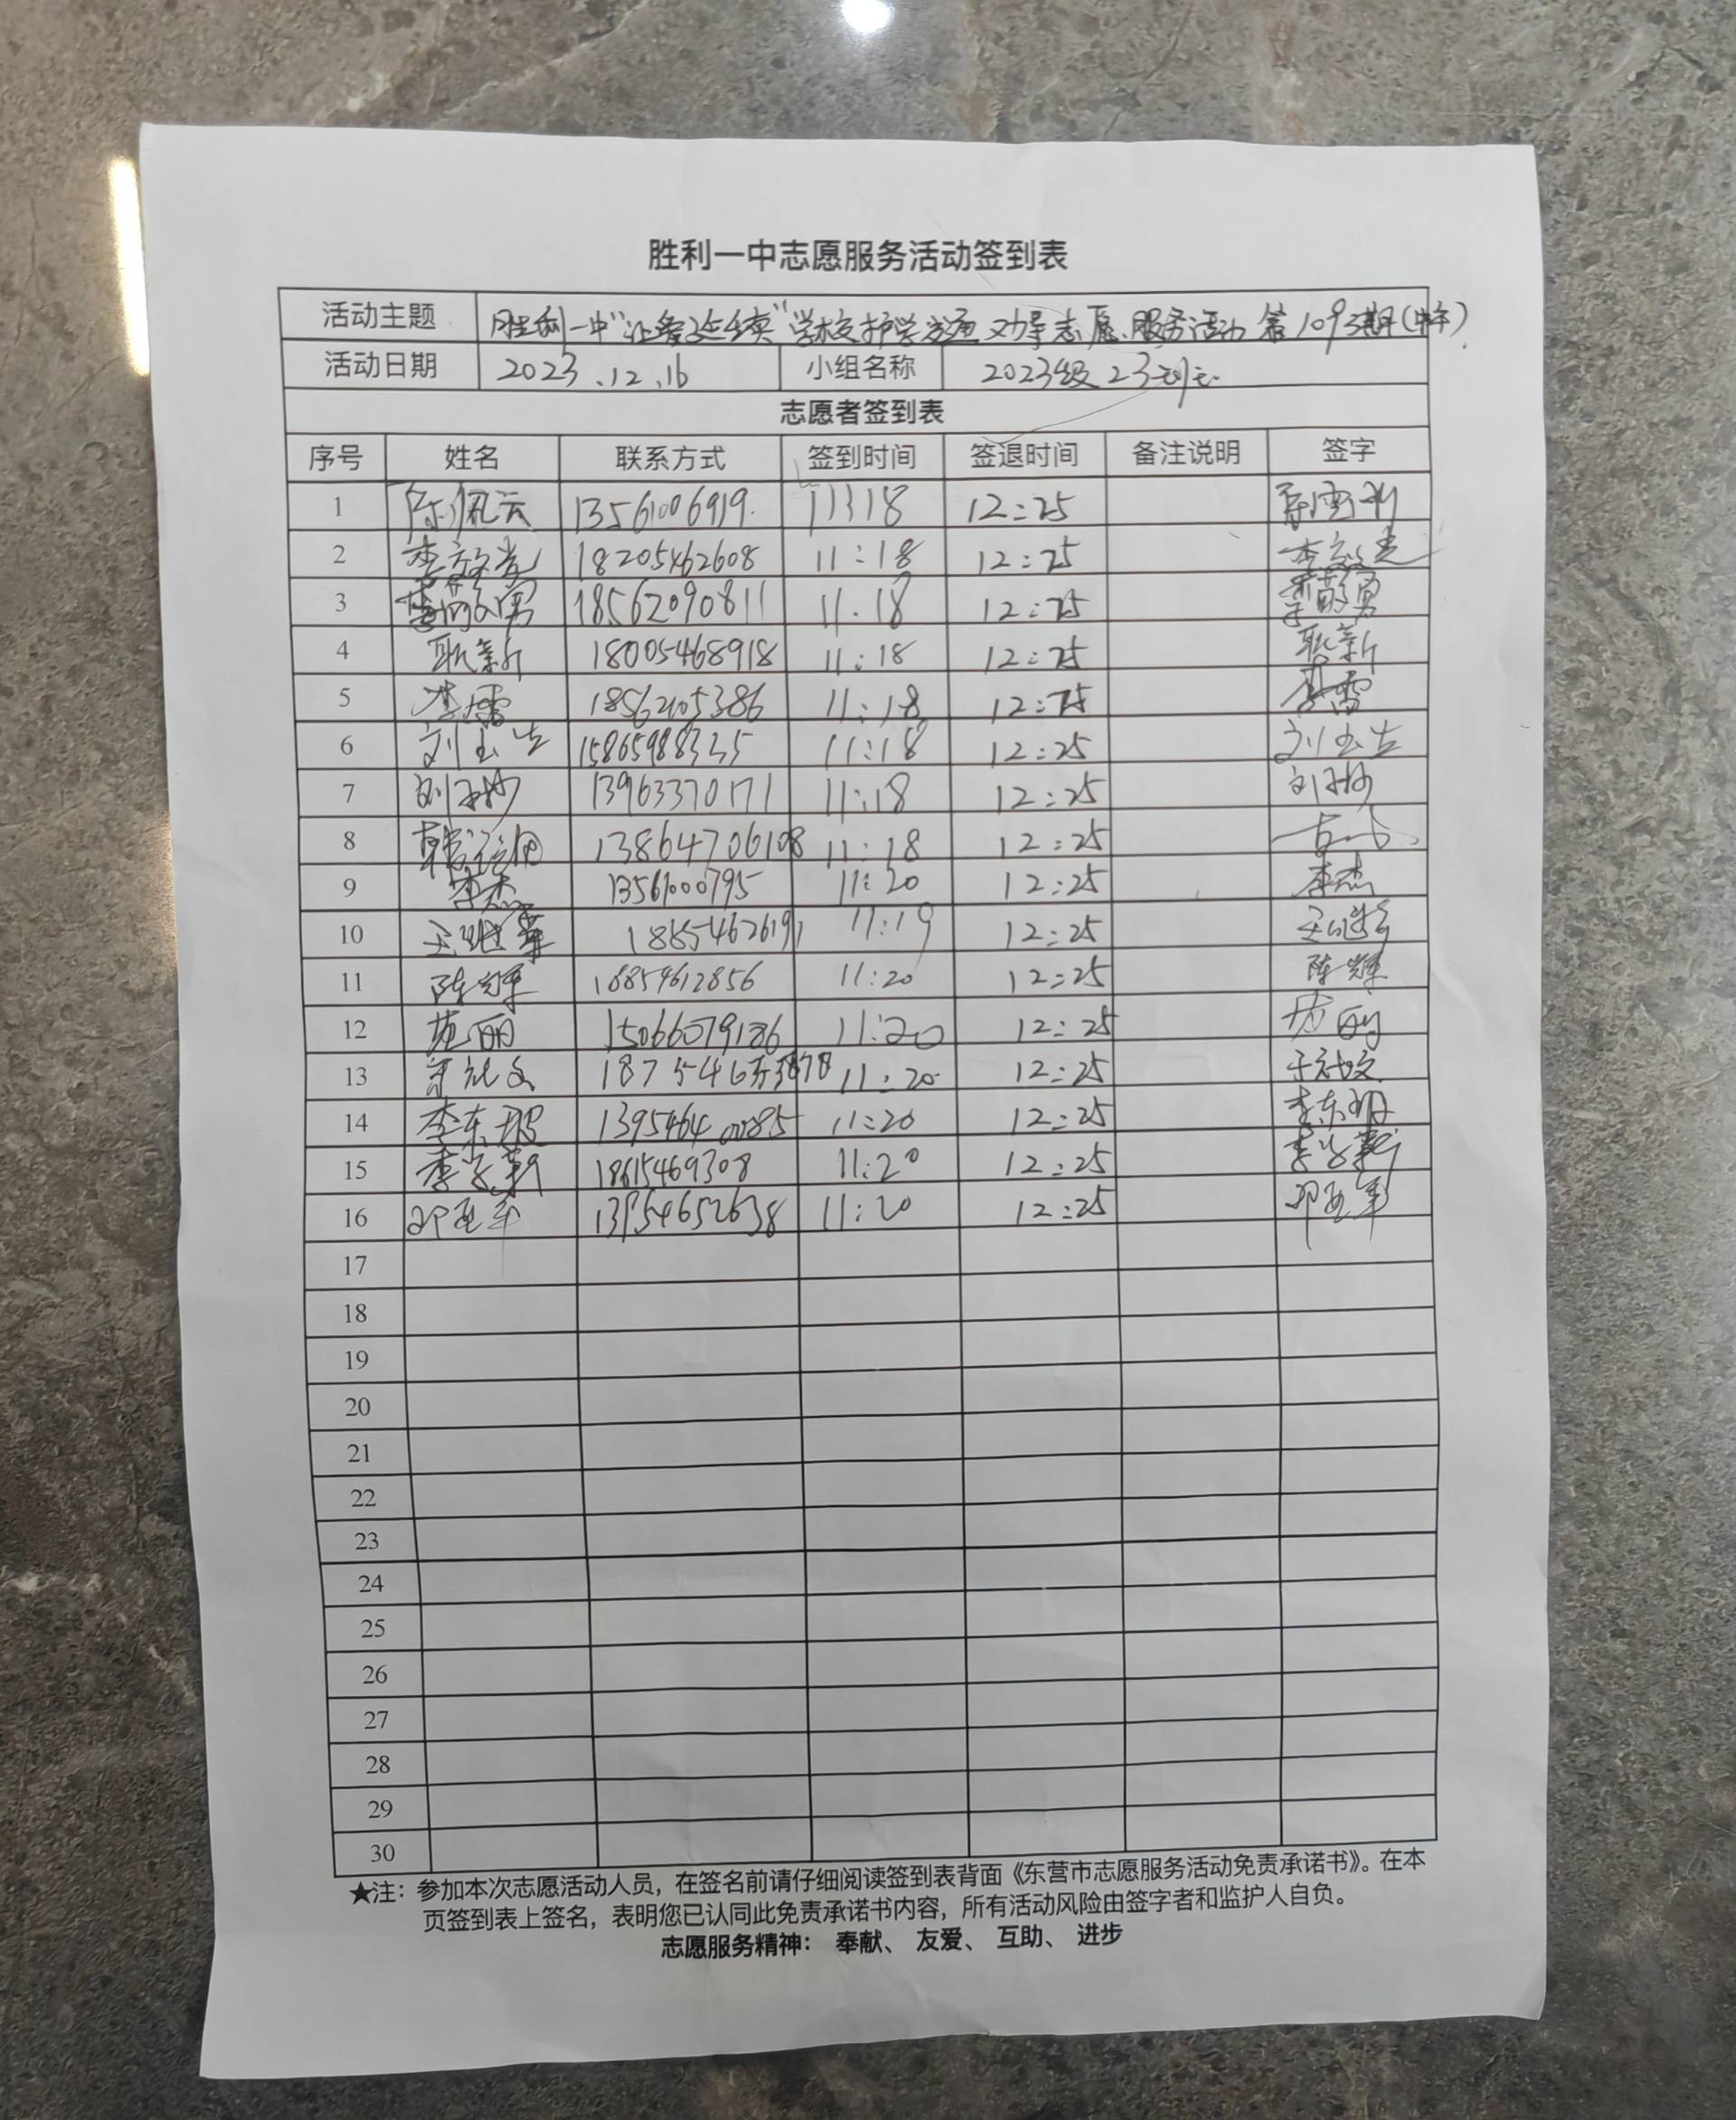 胜利一中志愿服务活动签到表
活动主题 胜利一中“让爱延续”学校护学交通劝导志愿服务活动 第1093期(中午)
活动日期 2023.12.16 小组名称 2023级23班
志愿者签到表
序号 姓名 联系方式 签到时间 签退时间 备注说明 签字
1 陈佩云 13561006919 11:18 12:25
2 18205462608 11:18 12:25
3 18562090811 11.18 12:25
4 耿新 18005468918 11:18 12:25 耿新
5 李雷 11:18 12:25 李雷
6 刘玉 11:18 12:25 刘玉
7 刘 13963370171 11:18 12:25 刘
8 韩 13864706108 11:18 12:25
9 李杰 13561000795 11:20 12:25 李杰
10 王继 18854626191 11:19 12:25 王继
11 陈辉 18854612856 11:20 12:25 陈辉
12 范丽 15066079186 11:20 12:25 范丽
13 11:20 12:25
14 李东 11:20 12:25 李东
15 李 18615469308 11:20 12:25 李
16 邓亚军 11:20 12:25 邓亚军
17
18
19
20
21
22
23
24
25
26
27
28
29
30
★注：参加本次志愿活动人员，在签名前请仔细阅读签到表背面《东营市志愿服务活动免责承诺书》。在本
页签到表上签名，表明您已认同此免责承诺书内容，所有活动风险由签字者和监护人自负。
志愿服务精神： 奉献、 友爱、 互助、 进步